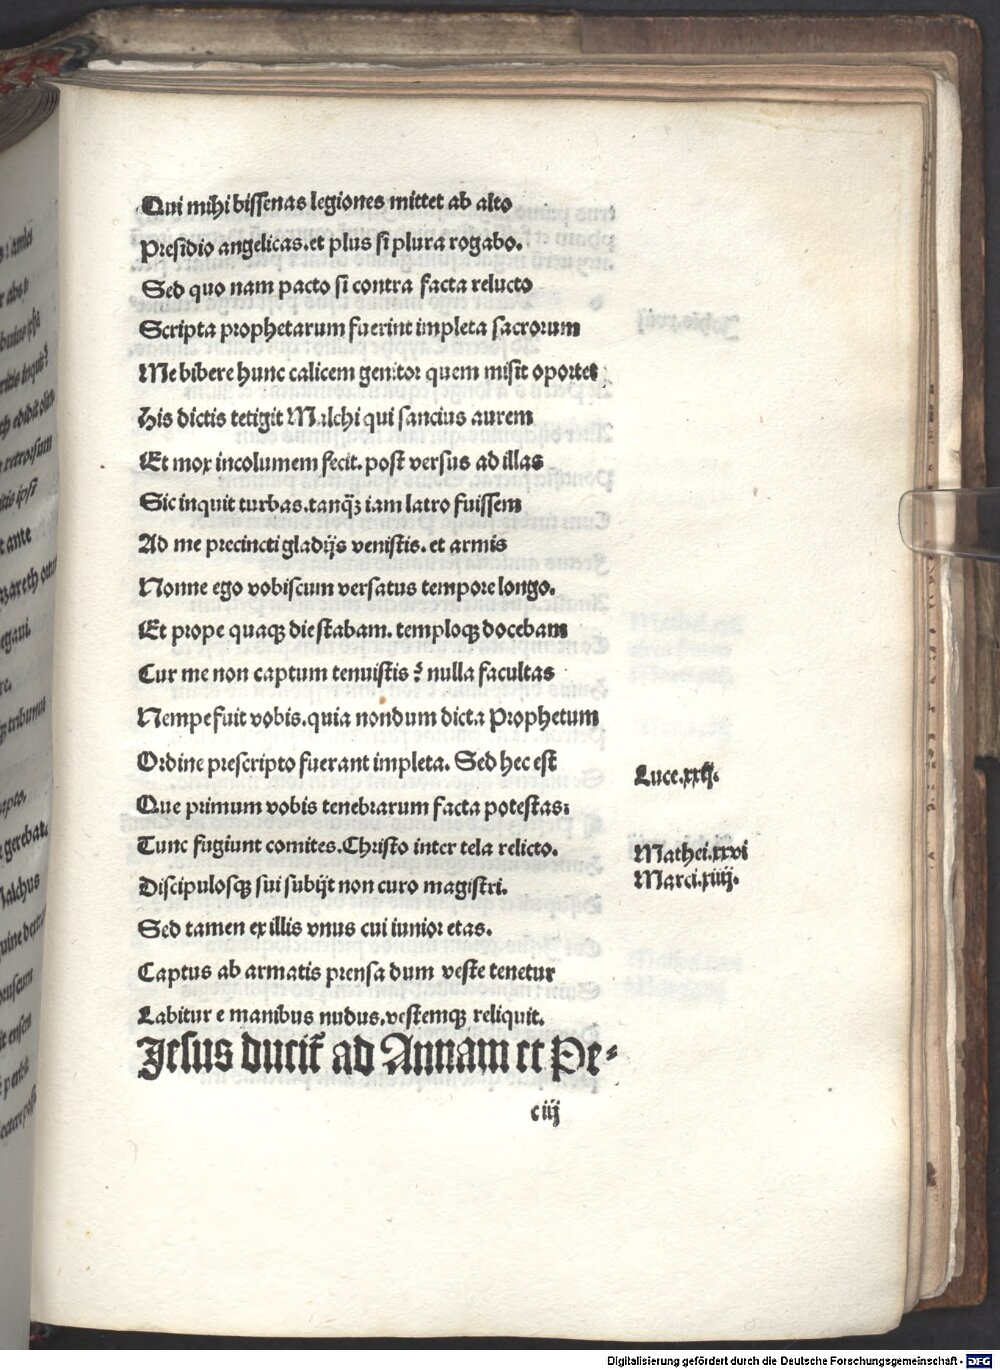 Qui mihi bissenas legiones mittet ab alto
Presidio angelicas. et plus si plura rogabo.
Sed quo nam pacto si contra facta relucto
Scripta prophetarum fuerint impleta sacrorum
Me bibere hunc calicem genitor quem misit oportet
His dictis tetigit Malchi qui saucius aurem
Et mox incolumem fecit. post versus ad illas
Sic inquit turbas. tanq̃ꝫ iam latro fuissem
Ad me precincti gladijs venistis. et armis
Nonne ego vobiscum versatus tempore longo.
Et prope quaqꝫ die stabam. temploqꝫ docebam
Cur me non captum tenuistis? nulla facultas
Nempe fuit vobis. quia nondum dicta Prophetum
Ordine prescripto fuerant impleta. Sed hec est
Luce.xxij.
Que primum vobis tenebrarum facta potestas:
Tunc fugiunt comites. Christo inter tela relicto.
Mathei.xxvi
Discipulosqꝫ sui subijt non curo magistri.
Marci.xiiij.
Sed tamen ex illis vnus cui iunior etas.
Captus ab armatis prensa dum veste tenetur
Labitur e manibus nudus. vestemqꝫ reliquit.
Jesus ducit̃ ad Annam et Pe⸗
ciij
Digitalisierung gefördert durch die Deutsche Forschungsgemeinschaft - DFG